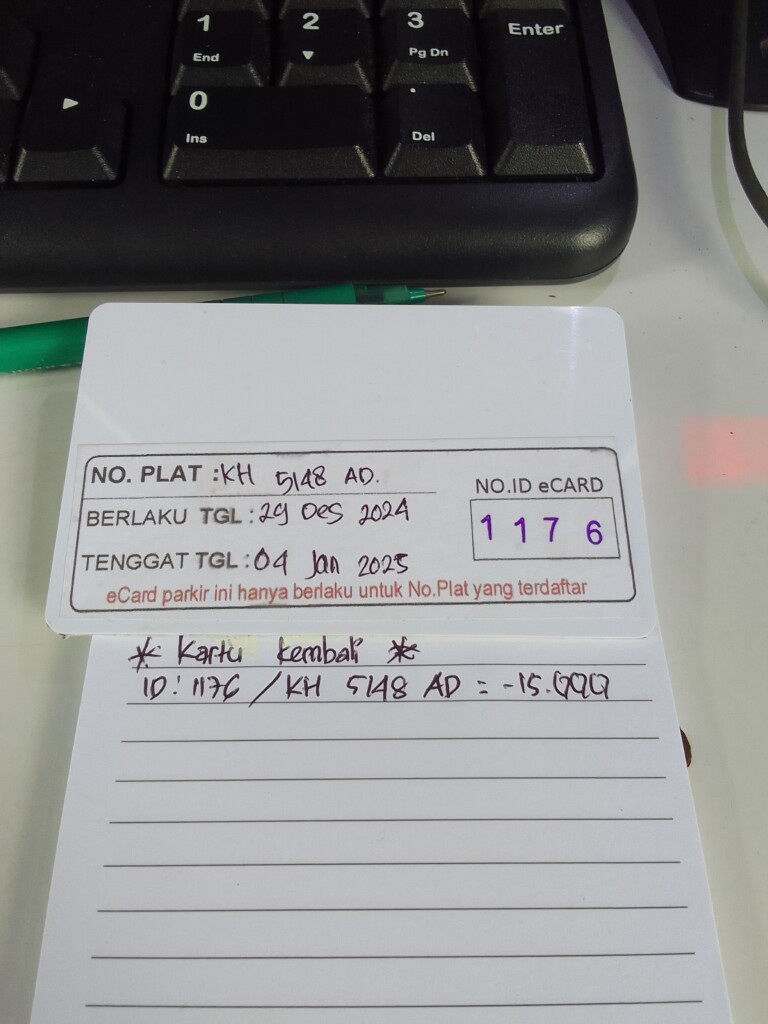 1
End
2
3
Pg Dn
Enter
0
Ins
.
Del
NO. PLAT : KH 5148 AD.
BERLAKU TGL : 29 Des 2024
TENGGAT TGL : 04 Jan 2025
NO.ID eCARD
1176
eCard parkir ini hanya berlaku untuk No.Plat yang terdaftar
* Kartu kembali *
ID: 1176 / KH 5148 AD = -15.000